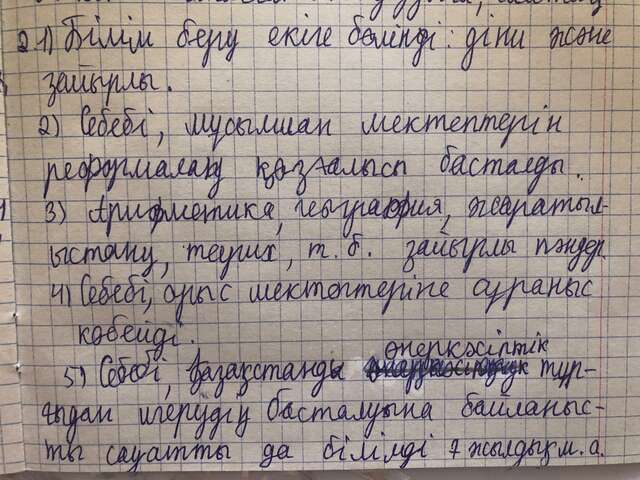 2 1) Білім беру екіге бөлінді: діни және
зайырлы.
2) Себебі, мұсылман мектептерін
реформалау қозғалысы басталды.
3) Арифметика, география, жаратыл-
ыстану, тарих, т.б. зайырлы пәндер.
4) Себебі, орыс мектептеріне сұраныс
көбейді.
өнеркәсіптік
5) Себебі, Қазақстанды тұр-
ғыдан игерудің басталуына байланыс-
ты сауатты да білімді 7 жылдық м.а.